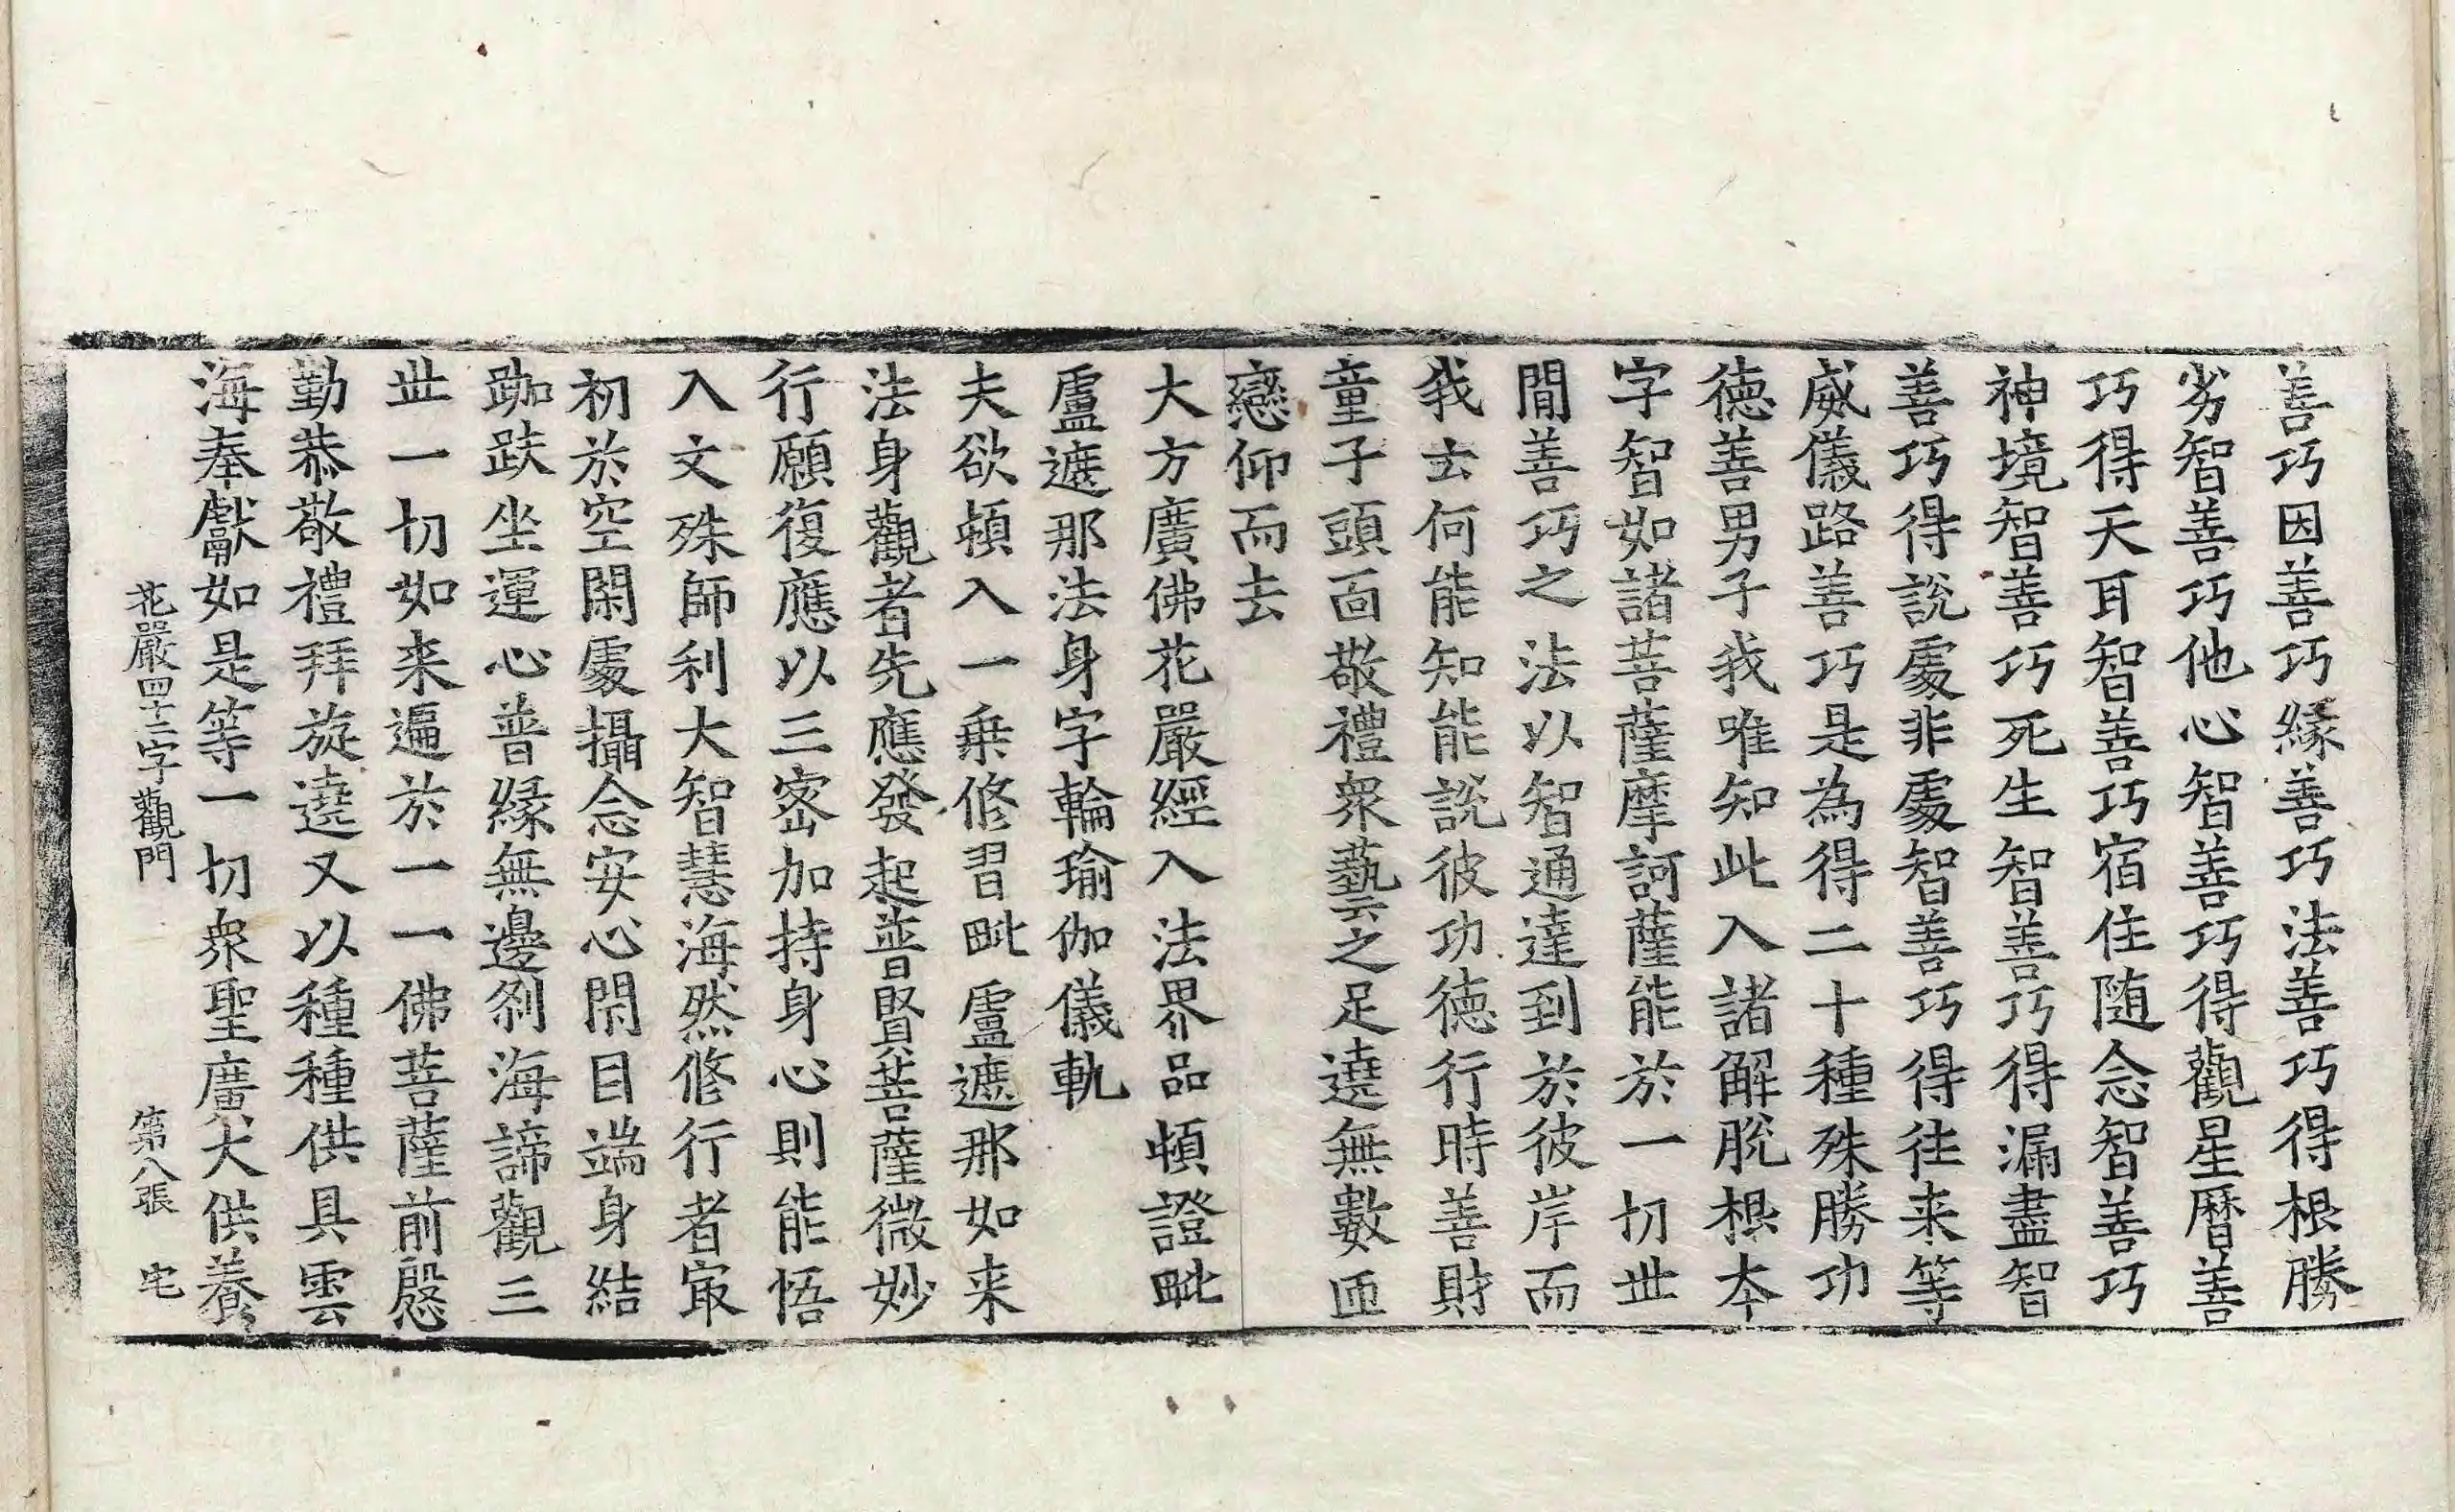 善巧因善巧縁善巧法善巧得根勝
劣智善巧他心智善巧得觀星曆善
巧得天耳智善巧宿住随念智善巧
神境智善巧死生智善巧得漏盡智
善巧得說處非處智善巧得往来等
威儀路善巧是為得二十種殊勝功
徳善男子我唯知此入諸解脫根本
字智如諸菩薩摩訶薩能於一切世
間善巧之法以智通達到於彼岸而
我去何能知能說彼功徳行時善財
童子頭面敬禮衆藝之足遶無數匝
戀仰而去
大方廣佛花嚴經入法界品頓證毗
盧遮那法身字輪瑜伽儀軌
夫欲頓入一乗修習毗盧遮那如来
法身觀者先應發起普賢菩薩微妙
行願復應以三密加持身心則能悟
入文殊師利大智慧海然修行者㝡
初於空閑處攝念安心閇目端身結
跏趺坐運心普縁無邊刹海諦觀三
世一切如来遍於一一佛菩薩前慇
勤恭敬禮拜旋遶又以種種供具雲
海奉獻如是等一切衆聖廣大供養
花嚴四十二字觀門 第八張 宅